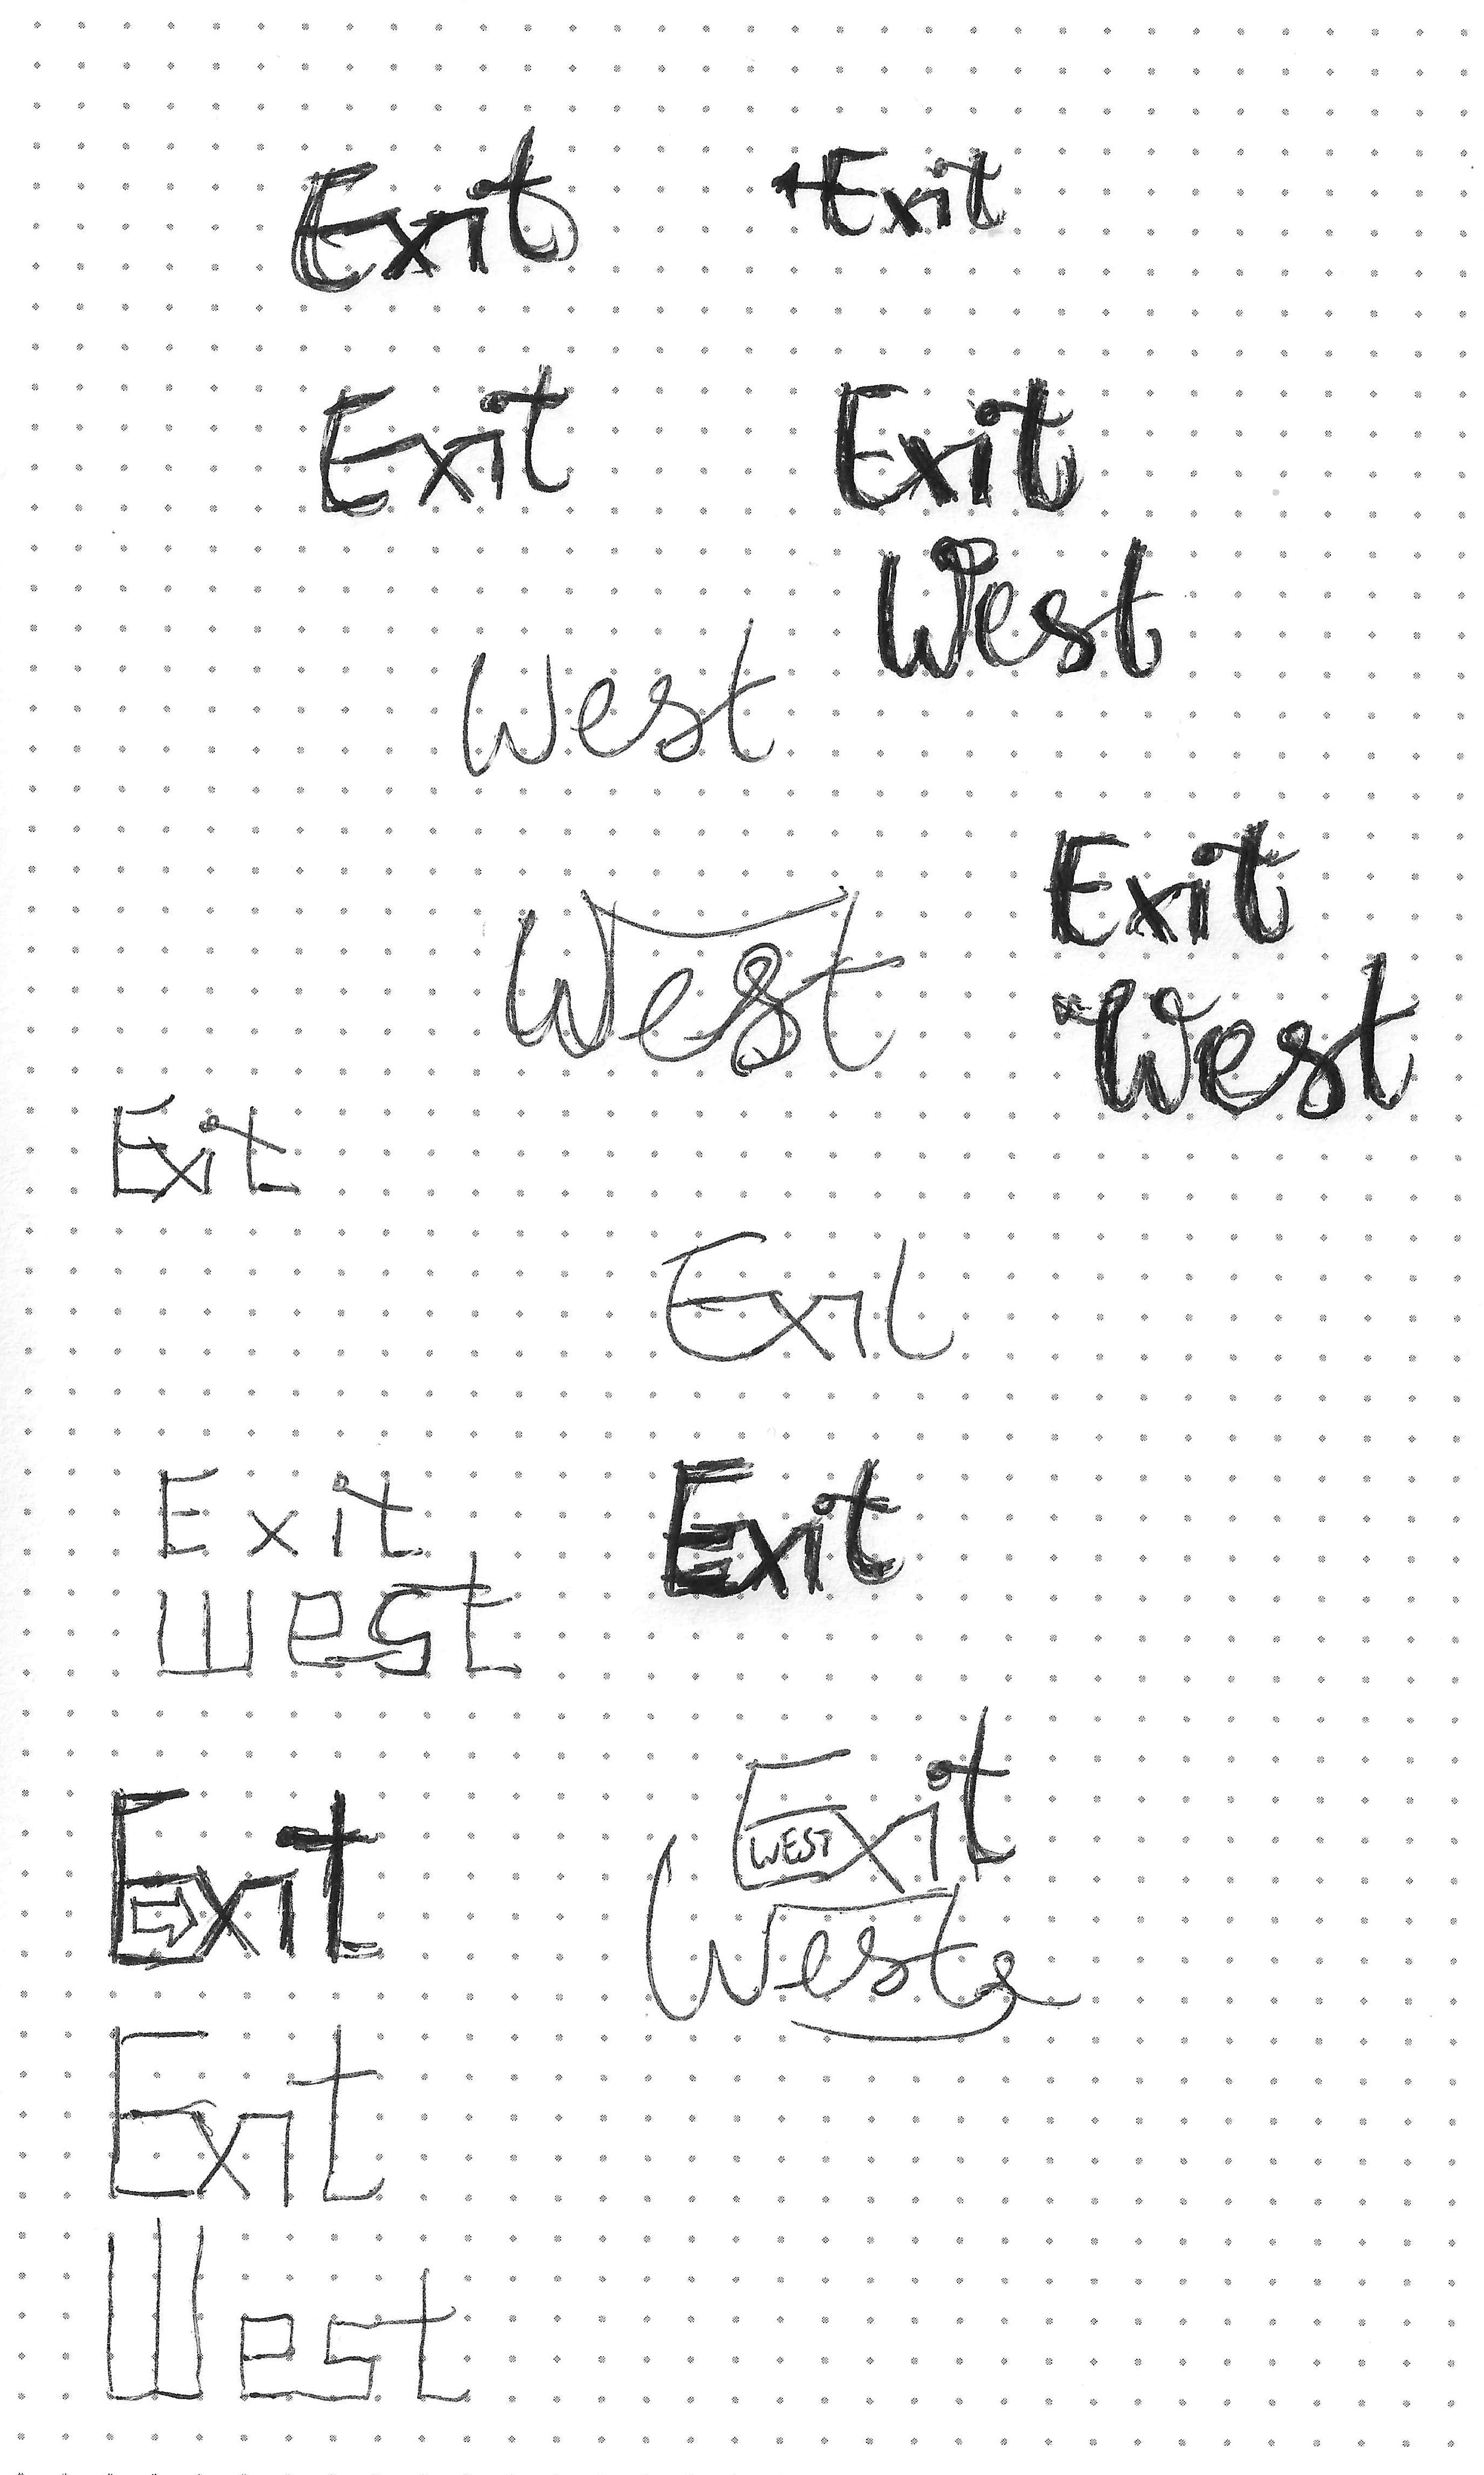 Exit
Exit
Exit
Exit
West
West
Exit
West
West
Exit
Exit
Exit
West
Exit
Exit
Exit
WEST
West
Exit
West